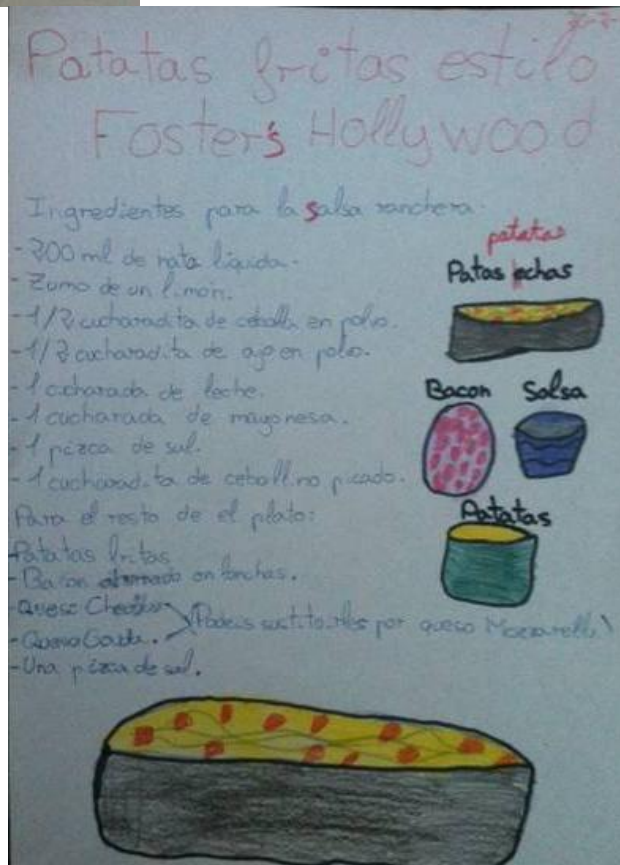 Patatas fritas estilo
Foster's Hollywood
Ingredientes para la salsa ranchera.
- 200 ml de nata líquida.
- Zumo de un limón.
- 1/2 cucharadita de cebolla en polvo.
- 1/2 cucharadita de ajo en polvo.
- 1 cucharada de leche.
- 1 cucharada de mayonesa.
- 1 pizca de sal.
- 1 cucharadita de cebollino picado.
Para el resto de el plato:
Patatas fritas
- Bacon ahumado en lonchas.
- Queso Cheddar
- Queso Gouda.
(Podeis sustituirlos por queso Mozzarella)
- Una pizca de sal.
patatas
Patas echas
Bacon Salsa
Patatas